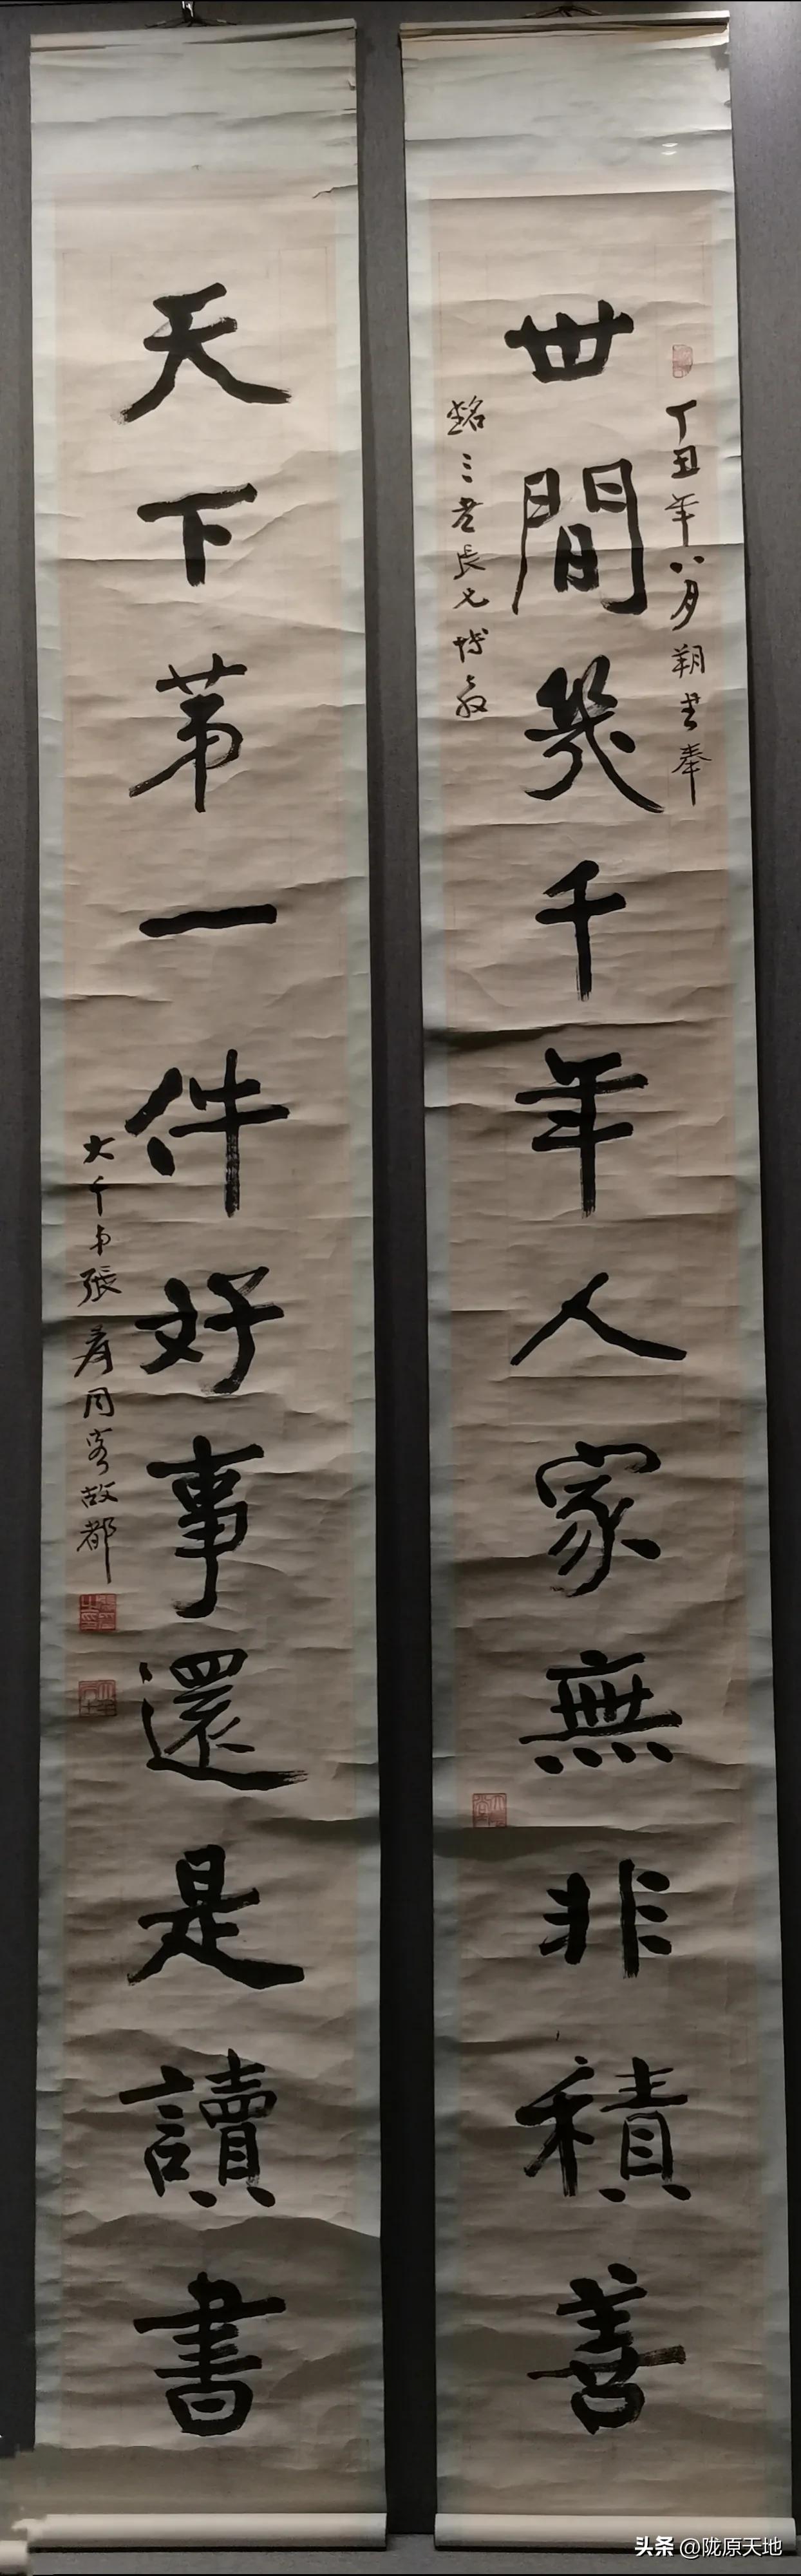 世間幾千年人家無非積善
丁丑年八月朔書奉
銘三老長兄博教
天下第一件好事還是讀書
大千弟張爰同客故都
头条 @陇原天地